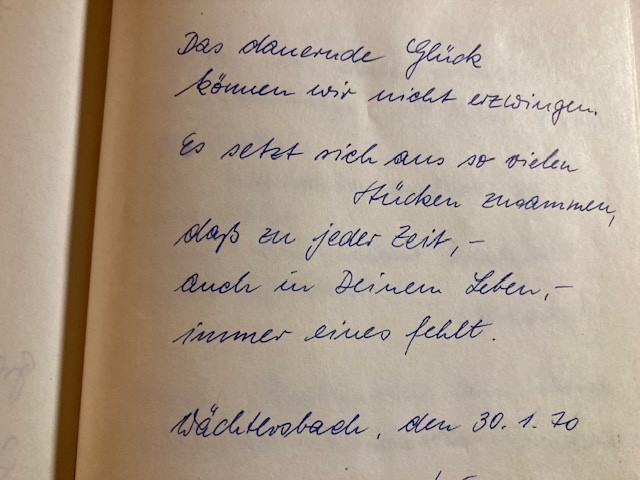 Das dauernde Glück
können wir nicht erzwingen.
Es setzt sich aus so vielen
Stücken zusammen,
daß zu jeder Zeit, –
auch in Deinem Leben, –
immer eines fehlt.
Wächtersbach, den 30. 1. 70